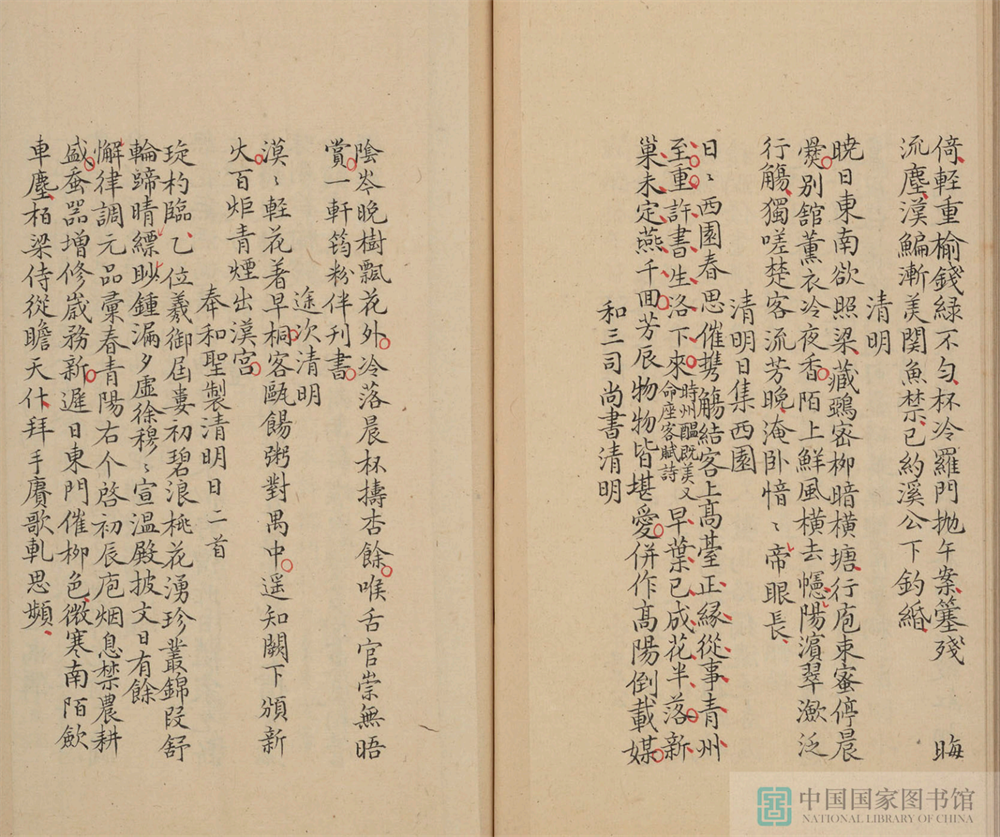 倚輕重榆錢緑不勻杯冷羅門抛午案簺殘　晦
流塵漠鯿漸美関魚禁已約溪公下釣緡
清明
曉日東南欲照梁藏鵶密柳暗横塘行庖束蜜停晨
爨別舘薰衣冷夜香陌上鮮風横去幰陽濱翠潋泛
行觴獨嗟楚客流芳晚淹卧愔〻帝眼長
清明日集西園
日〻西園春思催携觴結客上髙臺正縁從事青州
至重許書生洛下來時州醖既美又命座客賦詩早葉已成花半落新
巢未定燕千回芳辰物物皆堪愛併作髙陽倒載媒
和三司尚書清明
陰岑晚樹飄花外冷落晨杯擣杏餘喉舌官崇無晤
賞一軒筠粉伴刋書
途次清明
漠〻輕花着早桐客甌餳粥對禺中遥知闕下頒新
火百炬青煙出漢宫
奉和聖製清明日二首
琁杓臨乙位羲御屆婁初碧浪桃花湧珍叢錦段舒
輪蹄晴縹眇鍾漏夕虛徐穆〻宣温殿披文日有餘
懈律調元品彙春青陽右个啓初辰庖烟息禁農耕
盛蚕器增修嵗務新遲日東門催栁色微寒南陌歛
車塵栢梁侍從瞻天仆拜手賡歌軋思頻
中国国家图书馆
NATIONAL LIBRARY OF CHINA